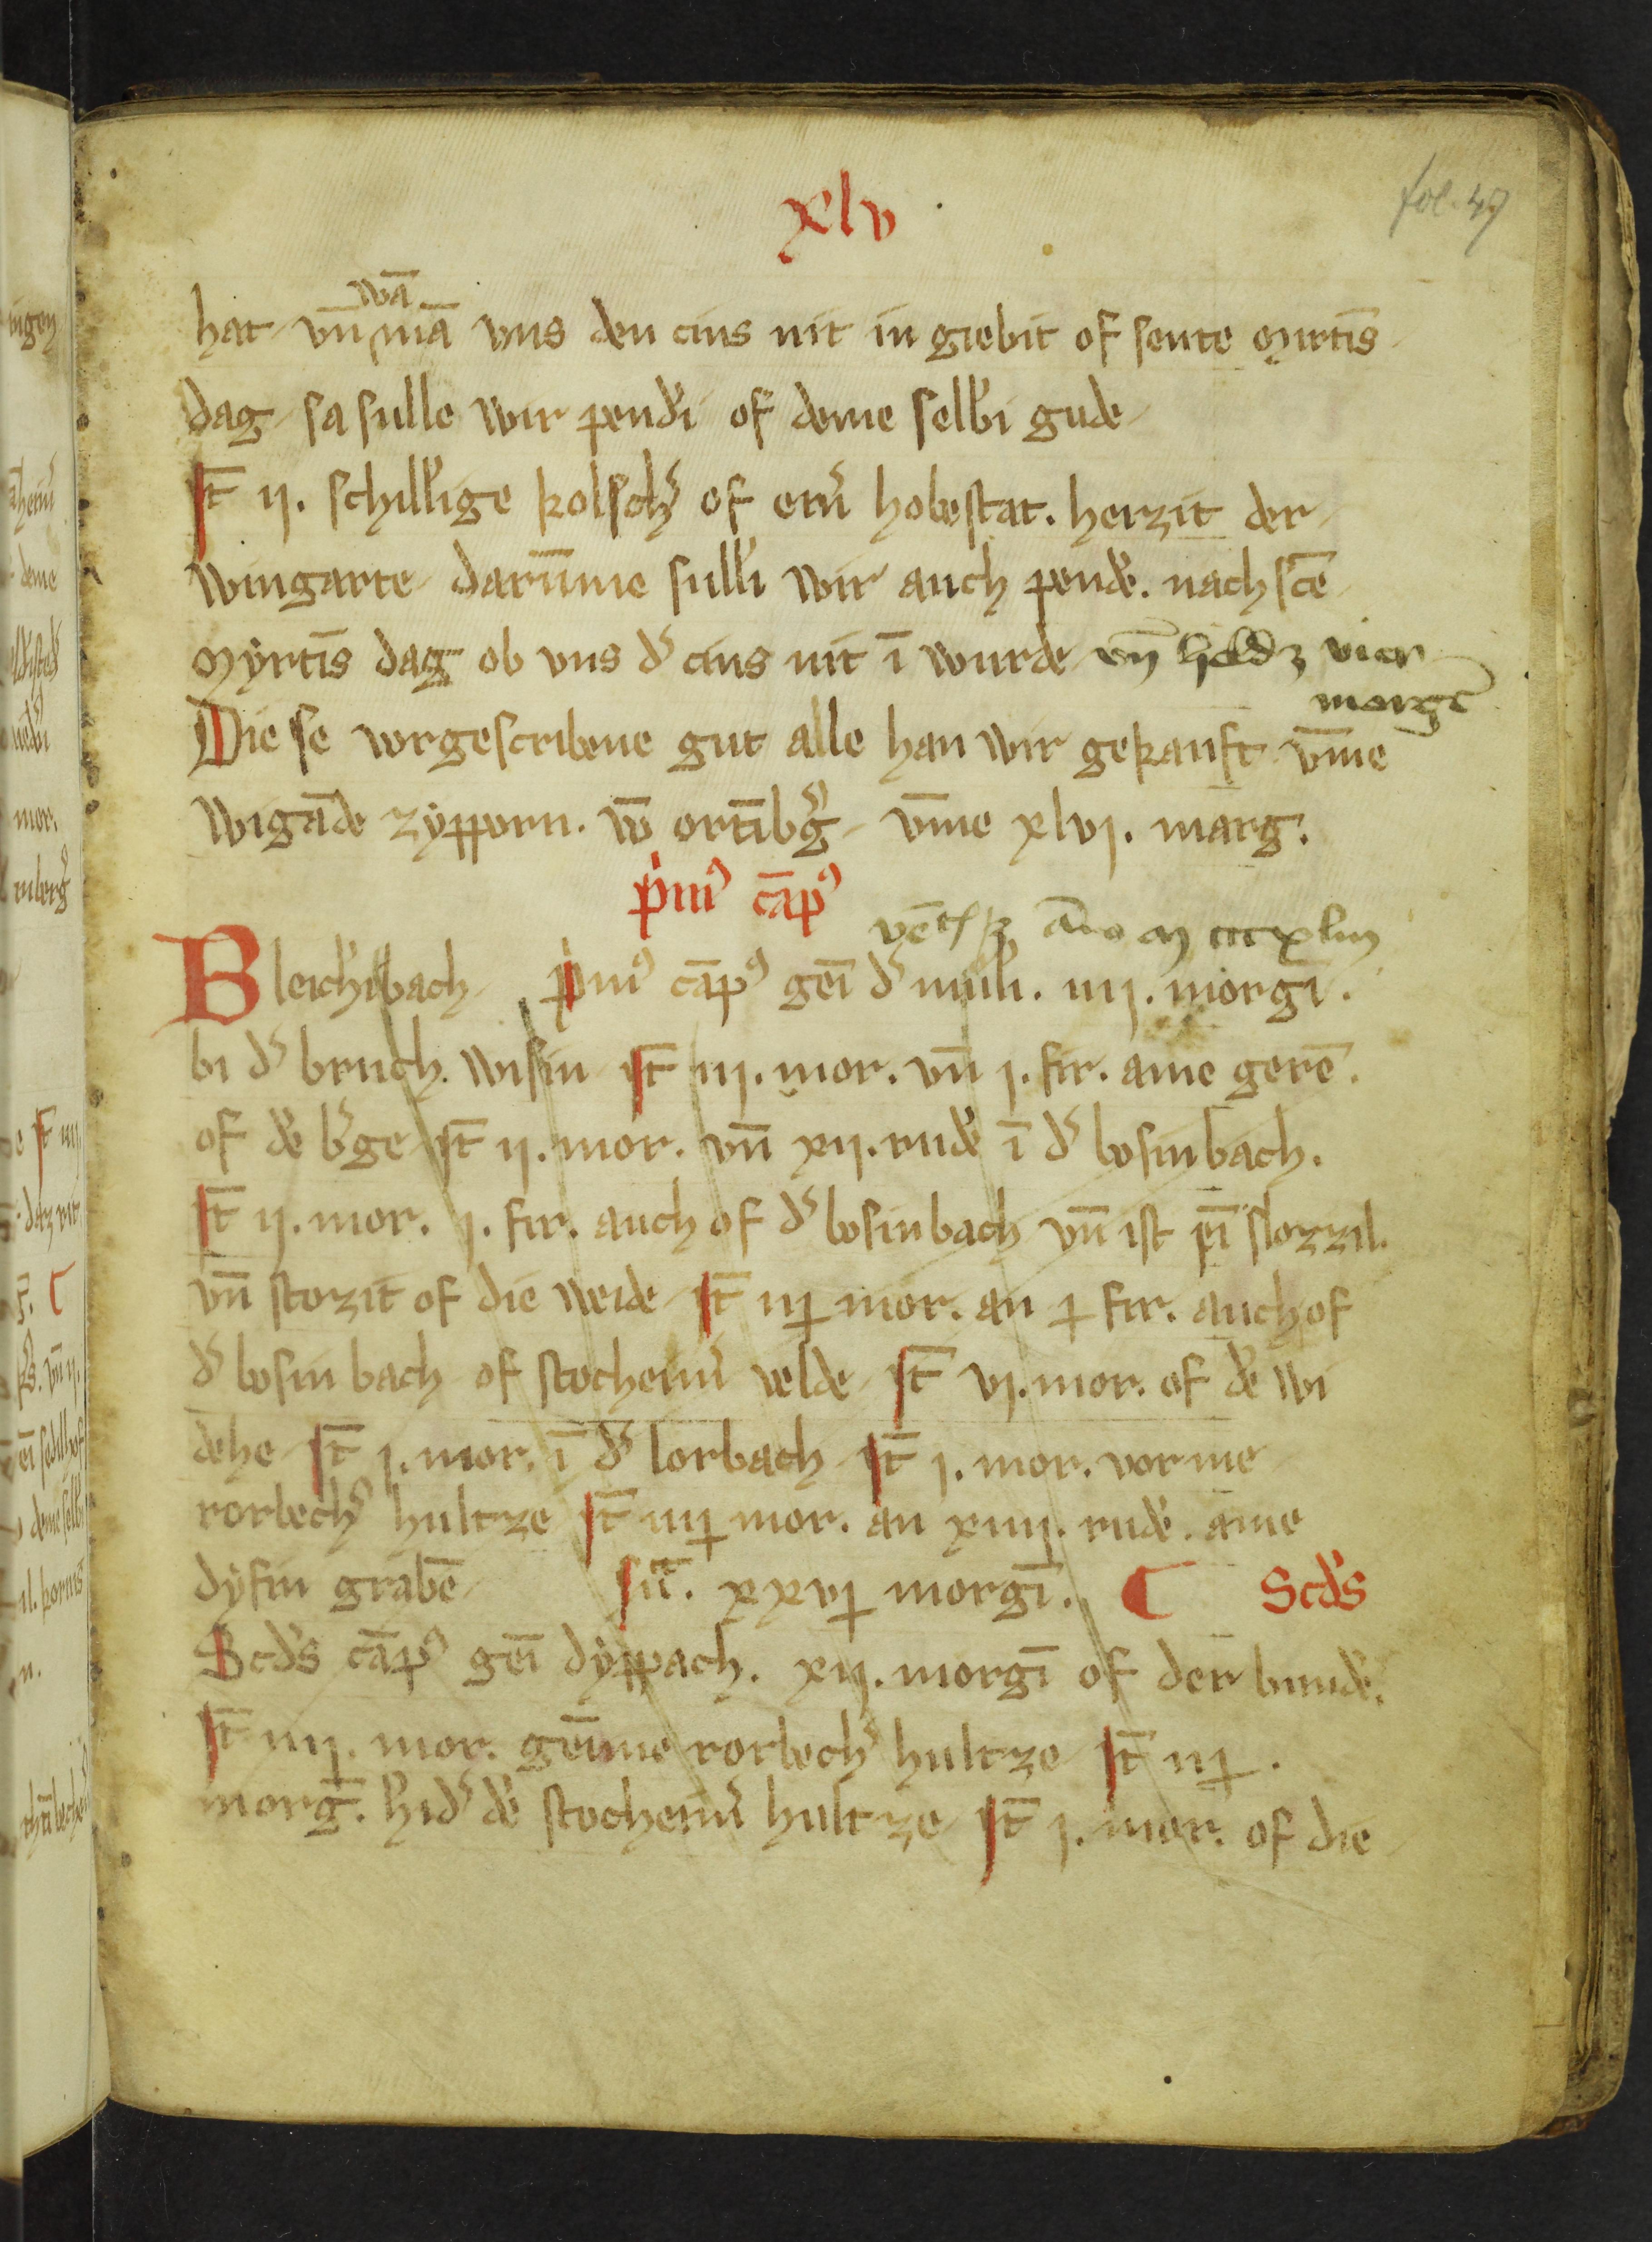 fol. 47
xlv
wā
hat vn̄ mā vns den cins nit in giebit of sente mirtīs
dag sa sulle wir pend'i of deme selb'i gude
Jt̄ ij. schill'ige kolsch' of em' hobestat. herzit der
wingarte darūme sull'i wir auch pend'e. nach scē
Myrtīs dag ob vns d' cins nit ī wurde vn̄ held3 vier
morgē
Die se vorgescribene gut alle han wir gekauft vm̄e
wigāde zypporn. vō ortībg' vm̄e xlvj. marg.
p'm' cāp'
vē anō m ccc xliij
Bleich'ibach p'm' cāp' gēi d' muli. iiij. morgī.
bi d' bruch. wisin Jt̄ iij. mor. vn̄ j. fir. ame gerē.
of d'e b'ge Jt̄ ij. mor. vn̄ xij. rud'e ī d' bosinbach.
Jt̄ ij. mor. j. fir. auch of d' bosinbach vn̄ ist pī slozzil.
vn̄ stozit of die weide Jt̄ iij mor. an j fir. auch of
d' bosin bach of stochem' velde Jt̄ vj. mor. of d'e wi
dehe Jt̄ j. mor. ī d' lorbach Jt̄ j. mor. vor me
rorbech' hultze Jt̄ iiij mor. an xiiij. rud'e. ame
dyfin grabē Sū. xxvj morgī. Scd's
Scd's cāp' gēi dyppach. xij. morgī of der bunde.
Jt̄ iiij. mor. gēime rorbech' hultze Jt̄ iij.
morg̅. hīd' d'e stochem' hultze Jt̄ j. mor. of die